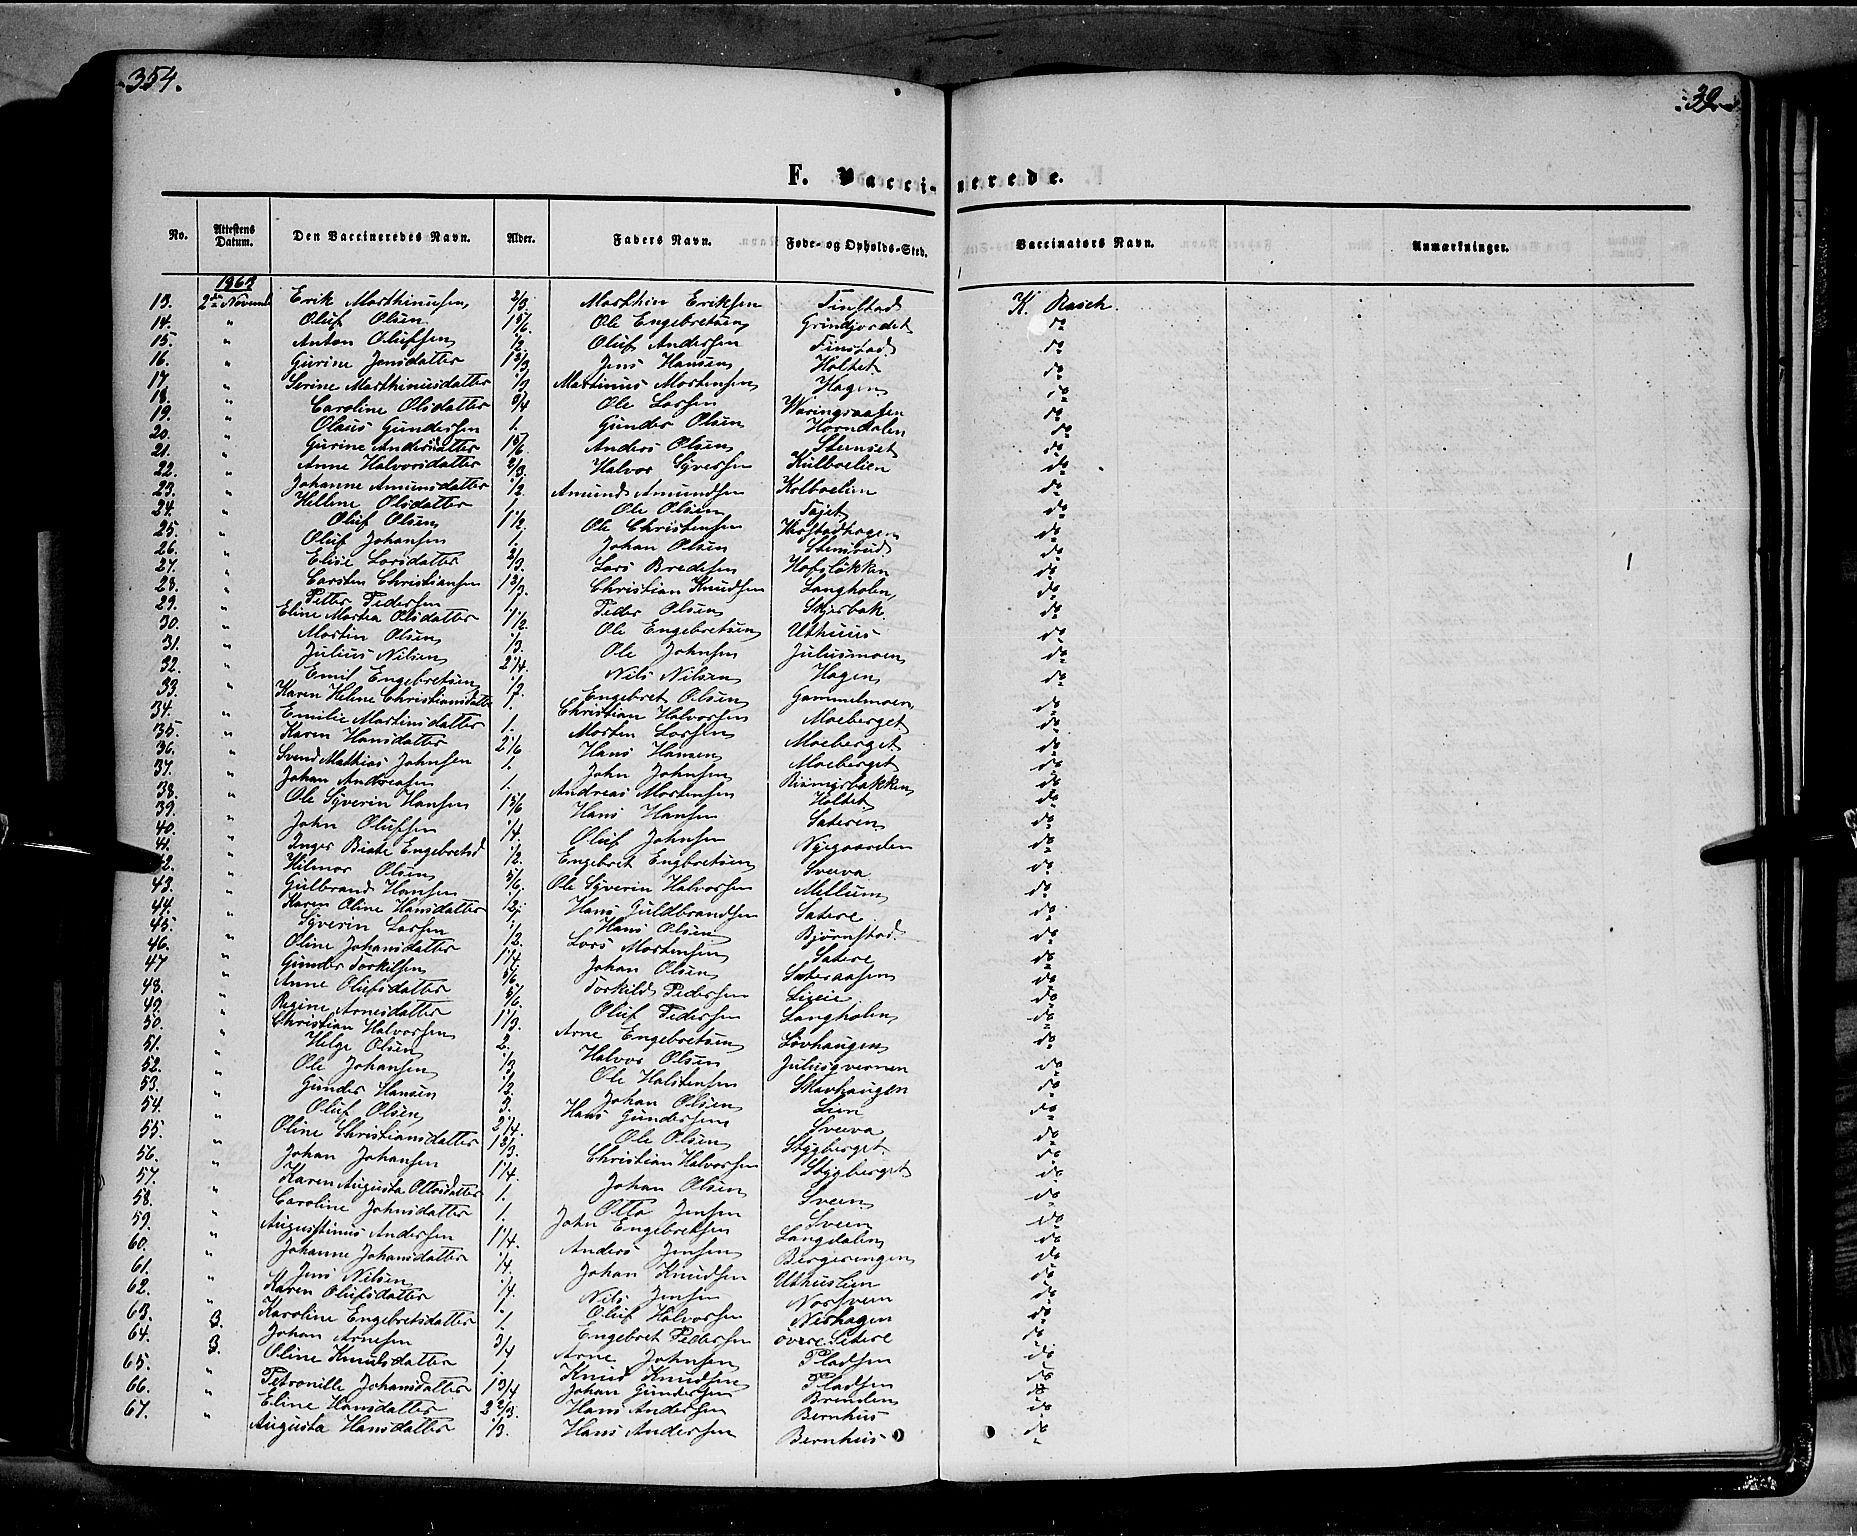 354.
F. Vaccinerede.
No. Attestens Datum. Den Vaccineredes Navn. Alder. Faders Navn. Føde- og Opholds-Sted. Vaccinators Navn. Anmærkninger.
13. 2den Novemb Erik Marthinusen 2/3 Marthin Eriksen Finstad K. Rasch.
14. " Oluf Olsen 1 5/6 Ole Engebretsen Grindjordet do
15. " Anton Olufsen 1/2. Oluf Andersen Finstad do
16. " Gurine Jensdatter 1 2/3 Jens Hansen Holtet do
17 " Serine Marthinusdatter 1/3 Martinus Mortensen Hagen do
18. " Caroline Olsdatter 3/4 Ole Larsen Waringsaasen do
19. " Olaus Gundersen 1. Gunder Olsen Horndalen do
20. " Gurine Andersdatter 1 5/6 Anders Olsen Stenset do
21. " Anne Halvorsdatter 2/3. Halvor Syversen Kulboelien do
22. " Johanne Amunsdatter 1/2 Amund Amundsen Kolboelien do
23. " Hellene Olsdatter 1. Ole Olsen Tajet do
24. " Oluf Olsen 1 1/2. Ole Christensen Hofstadhagen do
25. " Oluf Johansen 1. Johan Olsen Stensrud do
26. " Elise Larsdatter 2/3. Lars Bredesen Hofsløkken do
27. " Carsten Christiansen 1 2/3. Christian Knudsen Langholen do
28. " Petter Pedersen 1. Peder Olsen Skjerbak do
29. " Eline Martea Olsdatter 1 1/2 Ole Engebretsen Uthuus do
30. " Martin Olsen 1/3. Ole Johnsen Julusmoen do
31. " Julius Nilsen 2 1/4. Nils Nilsen Hagen do
32. " Emil Engebretsen 1/2. Engebret Olsen Gammelmoen do
33. " Karen Helne Christiansdatter 1. Christian Halvorsen Moeberget do
34. " Emilie Martinsdatter 1. Morten Larsen Moeberget do
35. " Karen Hansdatter 2 1/6 Hans Hansen Moeberget do
36. " Svend Mathias Johnsen 1. John Johnsen Risingsbakken do
37. " Johan Andreasen 1. Andreas Mortensen Holtet do
38. " Ole Syverin Hansen 1 5/6 Hans Hansen Sateren do
39. " John Olufsen 1/4. Oluf Johnsen Nygaarden do
40. " Inger Beate Engebretsd 1/2. Engebret Engbretsen Sveeva do
41. " Hilmar Olsen 5/6. Ole Syverin Halvorsen Mellum do
42. " Gulbrand Hansen Hans Guldbrandsen Satere do
43. " Karen Oline Hansdatter Hans Olsen Bjørnstad do
44. " Syverin Larsen 1/2. Lars Mortensen Satere do
45. " Oline Johansdatter 1 1/4 Johan Olsen Sateraasen do
46. " Gunder Torkilsen 5/6. Torkild Pedersen do
47 " Anne Olufsdatter 5/6. Oluf Pedersen Langholen do
48. " Regine Arnesdatter 1 1/3. Arne Engebretsen Lovhaugen do
49. " Christian Halvorsen 2. Halvor Olsen Julusqvernen do
50. " Helge Olsen 1/3 Ole Halstensen Skavhaugen do
51. " Ole Johansen 1/2. Johan Olsen Lien do
52. " Gunder Hansen 3. Hans Gundersen Sveeva do
53. " Oluf Olsen 2 1/4. Ole Olsen Stygberget do
54. " Oline Christiansdatter 1 2/3. Christian Halvorsen Stygberget do
55. " Johan Johansen 1 1/4. Johan Olsen Sveen do
56. " Karen Augusta Ottosdatter 1. Otto Jensen Sveen do
57. " Caroline Johnsdatter 1. John Engebretsen Langdalen do
58. " Augustinus Andersen 1 1/4. Anders Jensen Bergeringen do
59. " Johanne Johansdatter 1/4. Johan Knudsen Uthuslien do
60. " Jens Nilsen 1/4. Nils Jensen Norsveen do
61. " Karen Olufsdatter 1. Oluf Halvorsen Nerhagen do
62. " Karoline Engebretsdatter 1. Engebret Pedersen øvre Setere do
63. 3. Johan Arnesen 3/4 Arne Johnsen Pladsen do
64. 3. Oline Knudsdatter 1. Knud Knudsen Pladsen do
65. " Petronille Johansdatter 1 3/4 Johan Gundersen Brenden do
66. " Eline Hansdatter 2 2/3. Hans Andersen Bernhus do
67. " Augusta Hansdatter 1/3. Hans Andersen Bernhus do